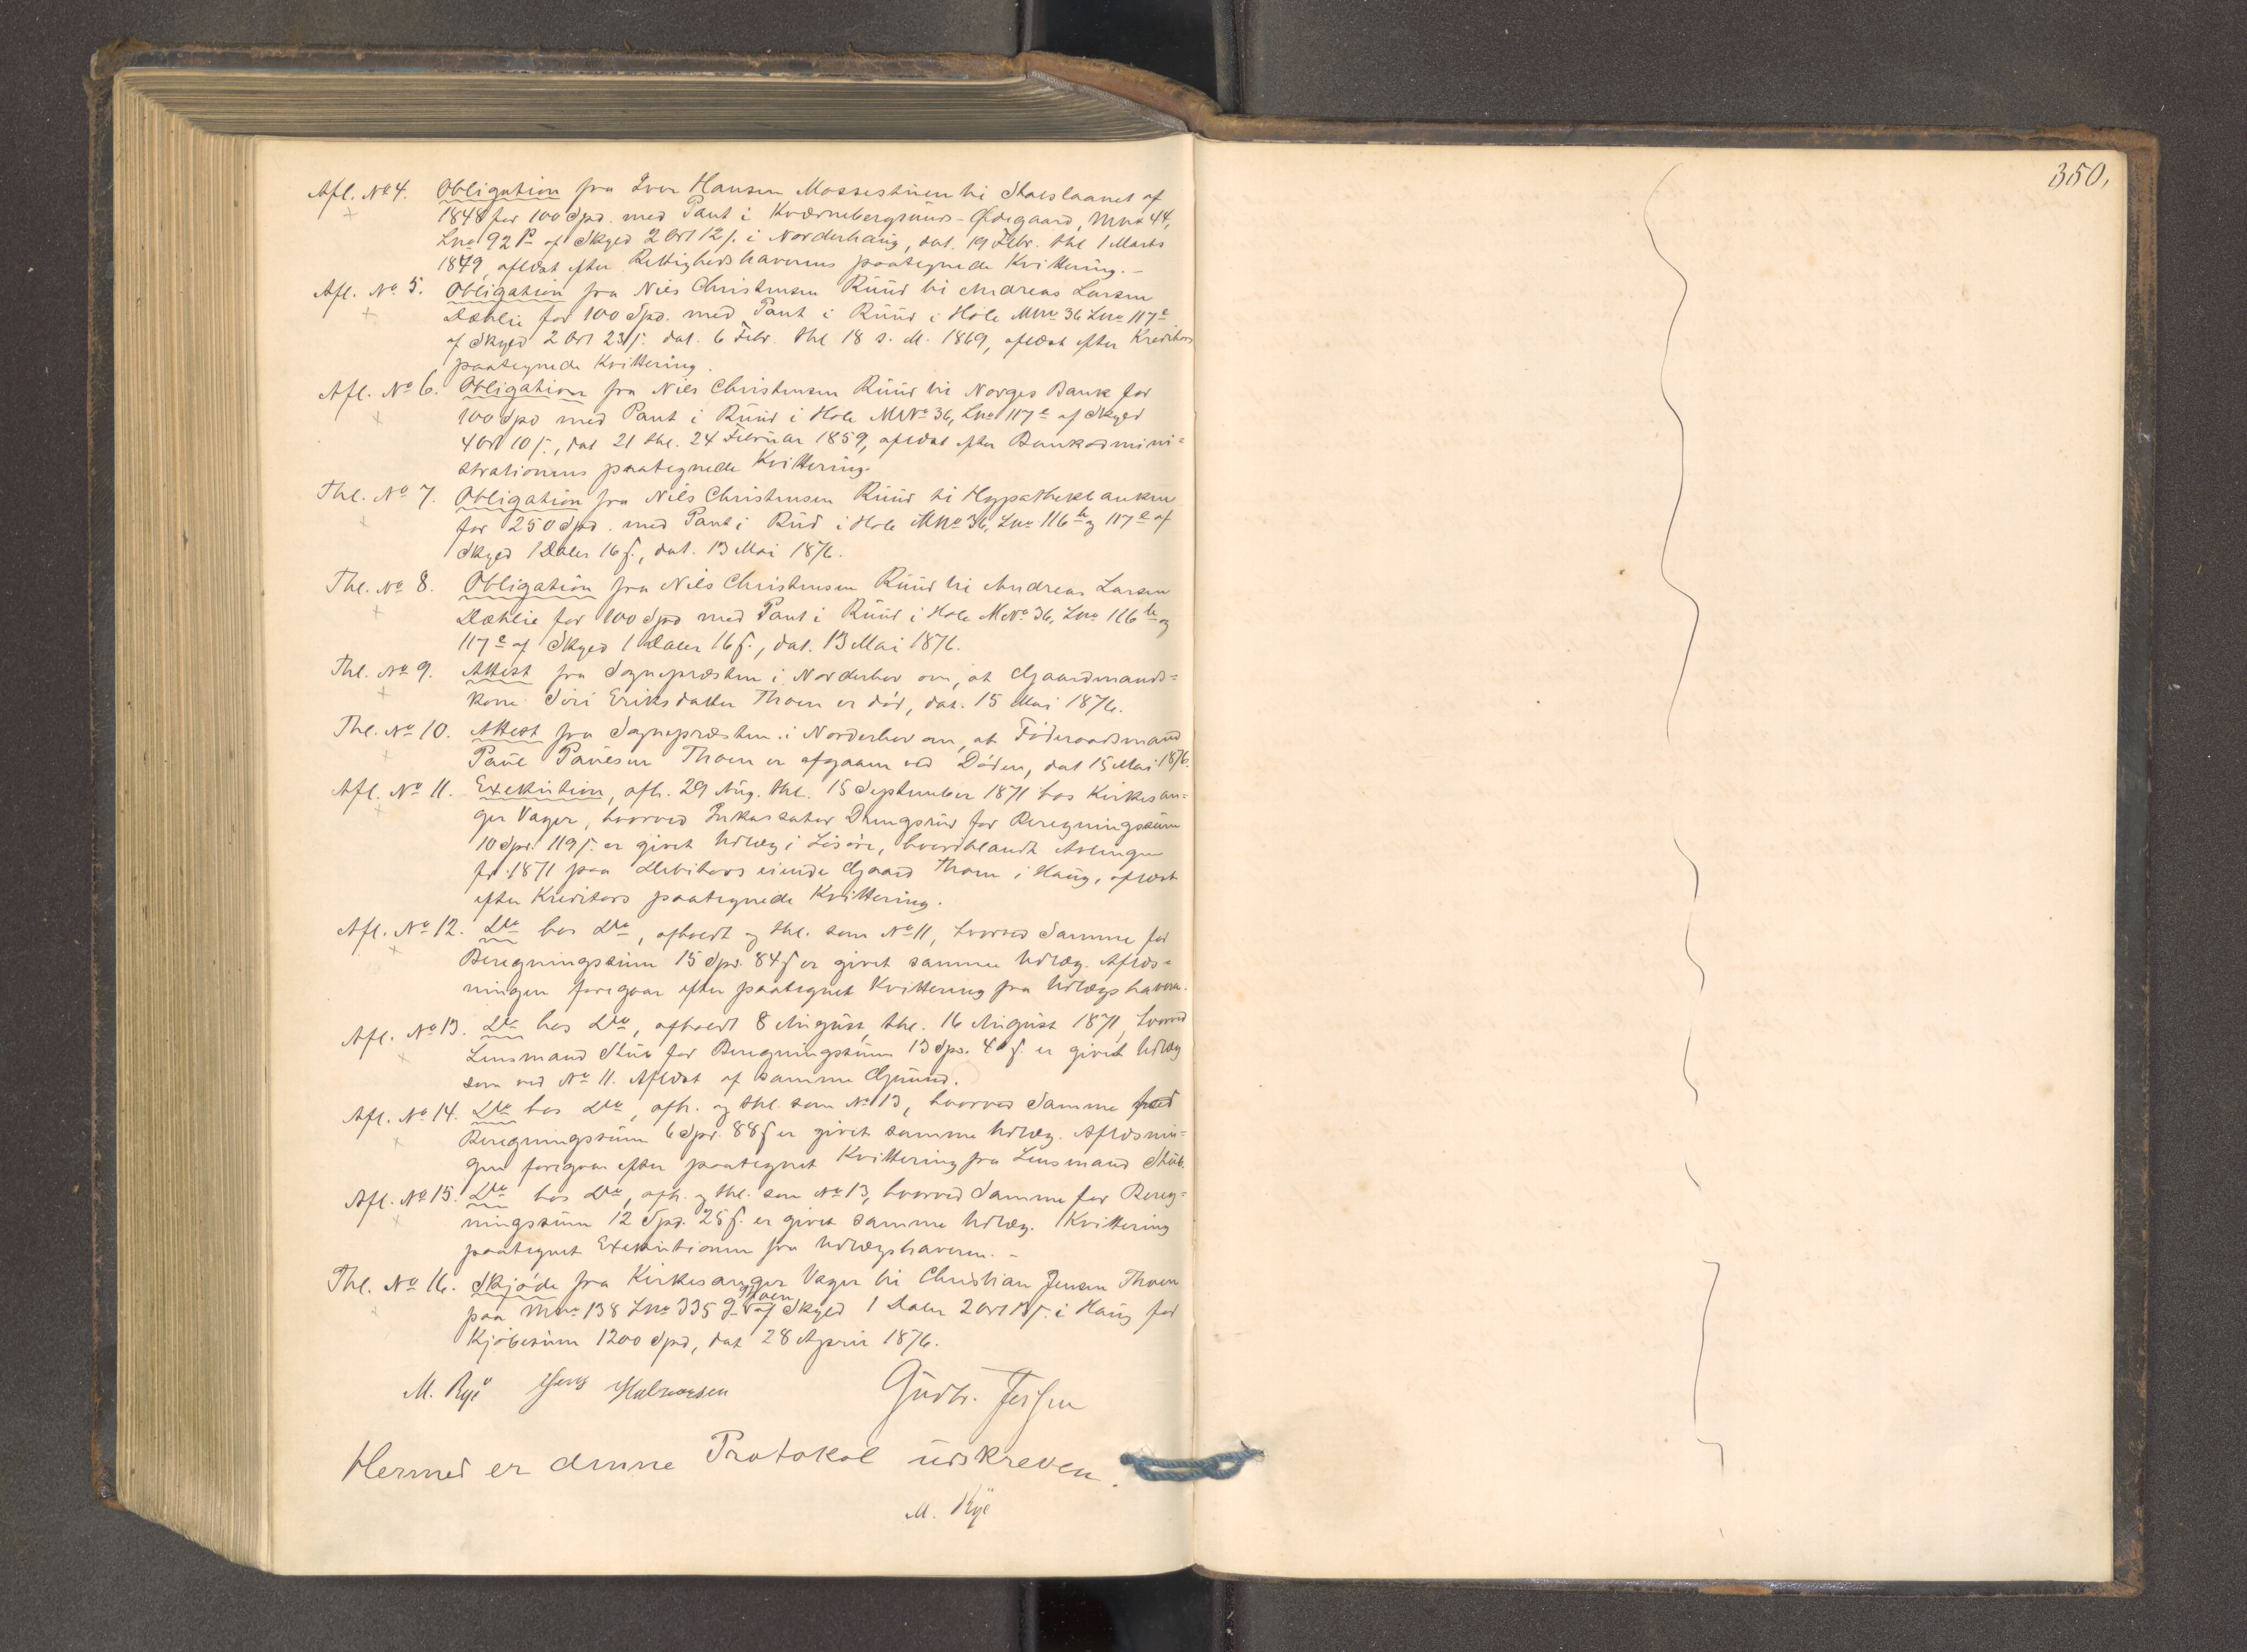 Afl. No 4. Obligation fra Iver Hansen Mossestuen til Statslaanet af
1848 for 100 Spd. med Pant i Kværnebergsunds-Ødegaard, Mno 44,
Lno 92 b af Skyld 2 Ort 12 s. i Norderhaug, dat. 19 Febr. thl 1 Marts
1849, aflæst efter Rettighedshaverens paategnede Kvittering. -
Afl. No 5. Obligation fra Niels Christensen Ruud til Andreas Larsen
Dæhlie for 100 Spd. med Pant i Ruud i Hole Mno 36 Lno 117 e
af Skyld 2 Ort 23 s. dat. 6 Febr. thl 18 s. M. 1869, aflæst efter Kreditors
paategnede Kvittering.
Afl. No 6. Obligation fra Niels Christensen Ruud til Norges Bank for
100 Spd med Pant i Ruud i Hole MNo 36, Lno 117 e af Skyld
4 Ort 10 s., dat 21 thl. 24 Februar 1859, aflæst efter Bankadmini=
strationens paategnede Kvittering.
Thl. No 7. Obligation fra Nils Christensen Ruud til Hypothekbanken
for 250 Spd. med Pant i Rud i Hole Mno 36, Lno 116 b og 117 e af
Skyld 1 Daler 16 s., dat. 13 Mai 1876.
Thl. No 8. Obligation fra Nils Christensen Ruud til Andreas Larsen
Dæhlie for 100 Spd med Pant i Ruud i Hole MNo 36, Lno 116 b og
117 e af Skyld 1 Daler 16 s., dat. 13 Mai 1876.
Thl. No 9. Attest fra Sognepræsten i Norderhov om, at Gaardmands=
kone Siri Eriksdatter Thoen er død, dat. 15 Mai 1876.
Thl. No 10. Attest fra Sognepræsten i Norderhov om, at Føderaadsmand
Paul Paulsen Thoen er afgaaen ved Døden, dat 15 Mai 1876.
Afl. No 11. Exekution, afh. 29 Aug. thl. 15 September 1871 hos Kirkesan=
ger Vager, hvorved Inkassator Dhengsrud for Beregningssum
10 Spd. 119 s. er givet Udlæg i Løsøre, hvoriblandt Avlingen
for 1871 paa Debitors eiende Gaard Thoen i Haug, aflæst
efter Kreditors paategnede Kvittering.
Afl. No 12. Do hos Do, afholdt og thl. som No 11, hvorved Samme for
Beregningssum 15 Spd. 84 s er givet samme Udlæg. Aflæs=
ningen foregaar efter paategnet Kvittering fra Udlægshaveren.
Afl. No 13. Do hos Do, afholdt 8 August, thl. 16 August 1871, hvorved
Lensmand Stub for Beregningssum 13 Spd. 4 s. er givet Udlæg
som ved No 11. Aflæst af samme Grund.
Afl. No 14. Do hos Do, afh. og thl. som No 13, hvorved Samme for
Beregningssum 6 Spd. 88 s er givet samme Udlæg. Aflæsnin=
gen foregaar efter paategnet Kvittering fra Lensmand Stub.
Afl. No 15. Do hos Do, afh. og thl. som No 13, hvorved Samme for Bereg=
ningssum 12 Spd. 25 s. er givet samme Udlæg. Kvittering
paategnet Exekutionen fra Udlægshaveren. -
Thl. No 16. Skjøde fra Kirkesanger Vager til Christian Jensen Thoen
Thoen
paa Mno 138 Lno 335 g af Skyld 1 Daler 2 Ort 13 s. i Haug for
Kjøbesum 1200 Spd, dat 28 April 1876.
M. Rye Halvorsen Gudbr. Jessen
Hermed er denne Protokol udskreven.
M. Rye
350.